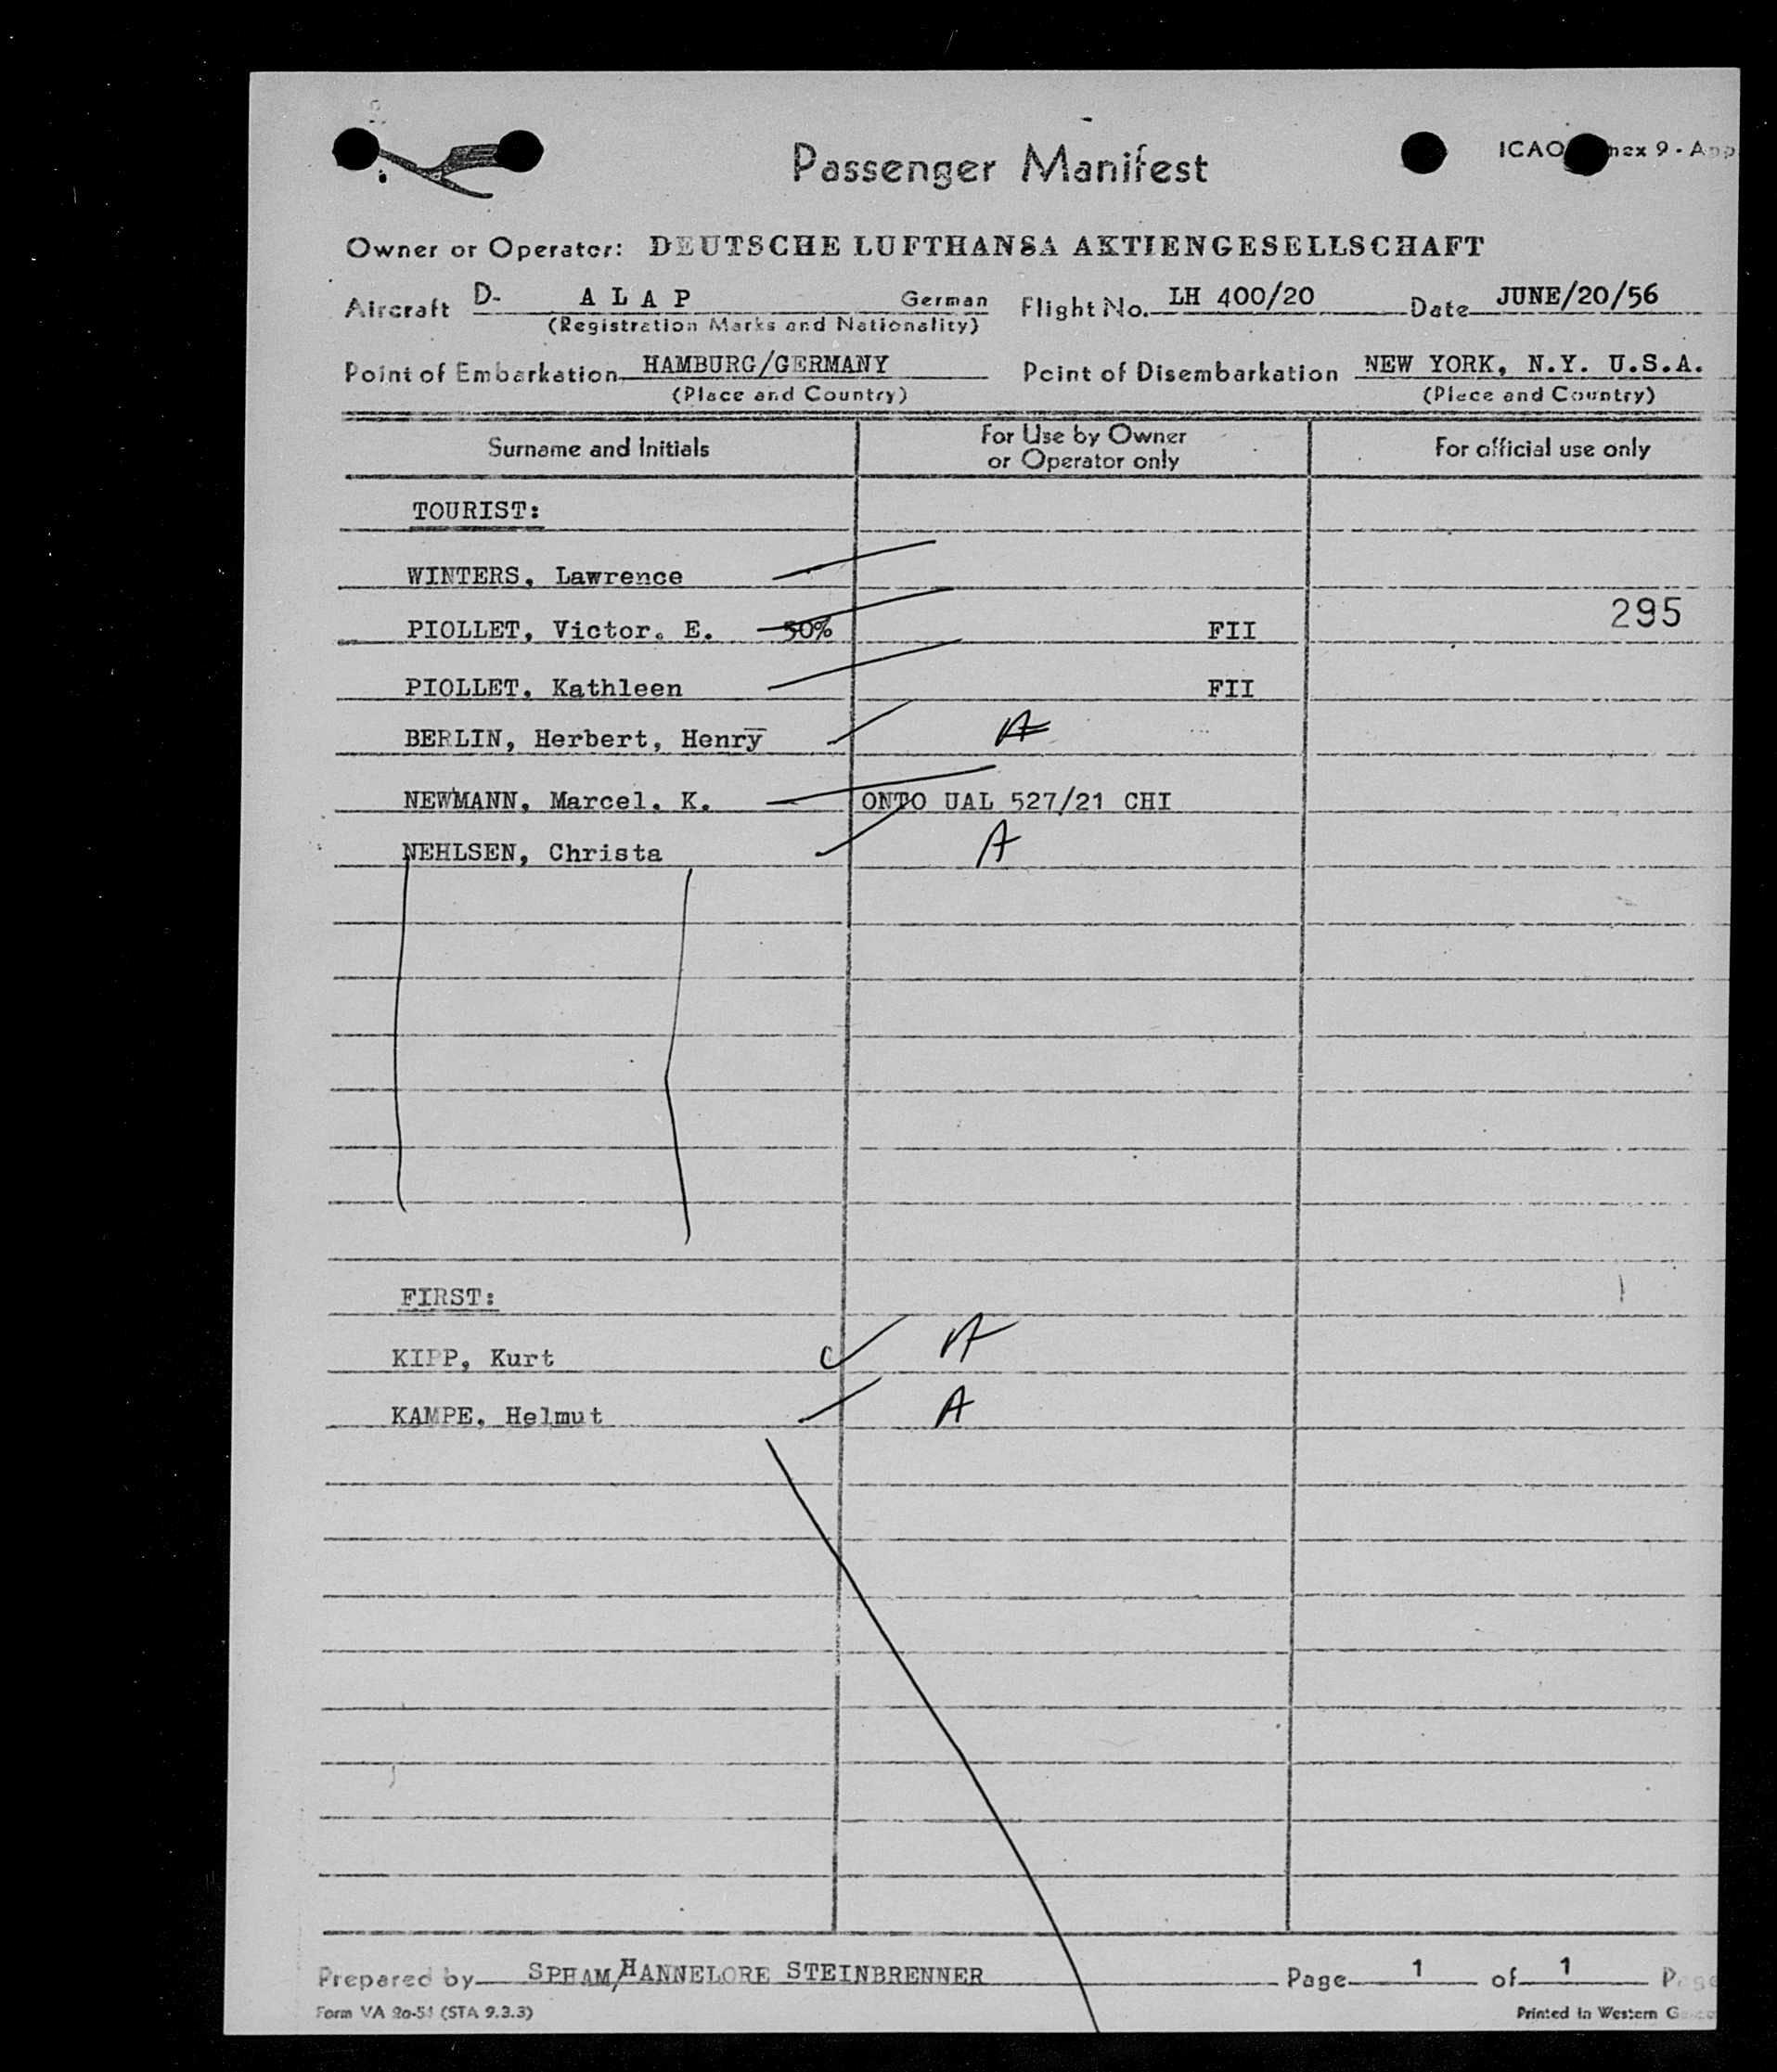 Passenger Manifest
ICAO nex 9 - App
Owner or Operator: DEUTSCHE LUFTHANSA AKTIENGESELLSCHAFT
Aircraft D- A L A P German Flight No. LH 400/20 Date JUNE/20/56
(Registration Marks and Nationality)
Point of Embarkation HAMBURG/GERMANY Point of Disembarkation NEW YORK, N.Y. U.S.A.
(Place and Country) (Place and Country)
Surname and Initials For Use by Owner or Operator only For official use only
TOURIST:
WINTERS, Lawrence
PIOLLET, Victor. E. 50% FII 295
PIOLLET, Kathleen FII
BERLIN, Herbert, Henry A
NEWMANN, Marcel. K. ONTO UAL 527/21 CHI
NEHLSEN, Christa A
FIRST:
KIPP, Kurt A
KAMPE, Helmut A
Prepared by SPHAM/HANNELORE STEINBRENNER Page 1 of 1 Page
Form VA 2a-51 (STA 9.3.3) Printed in Western